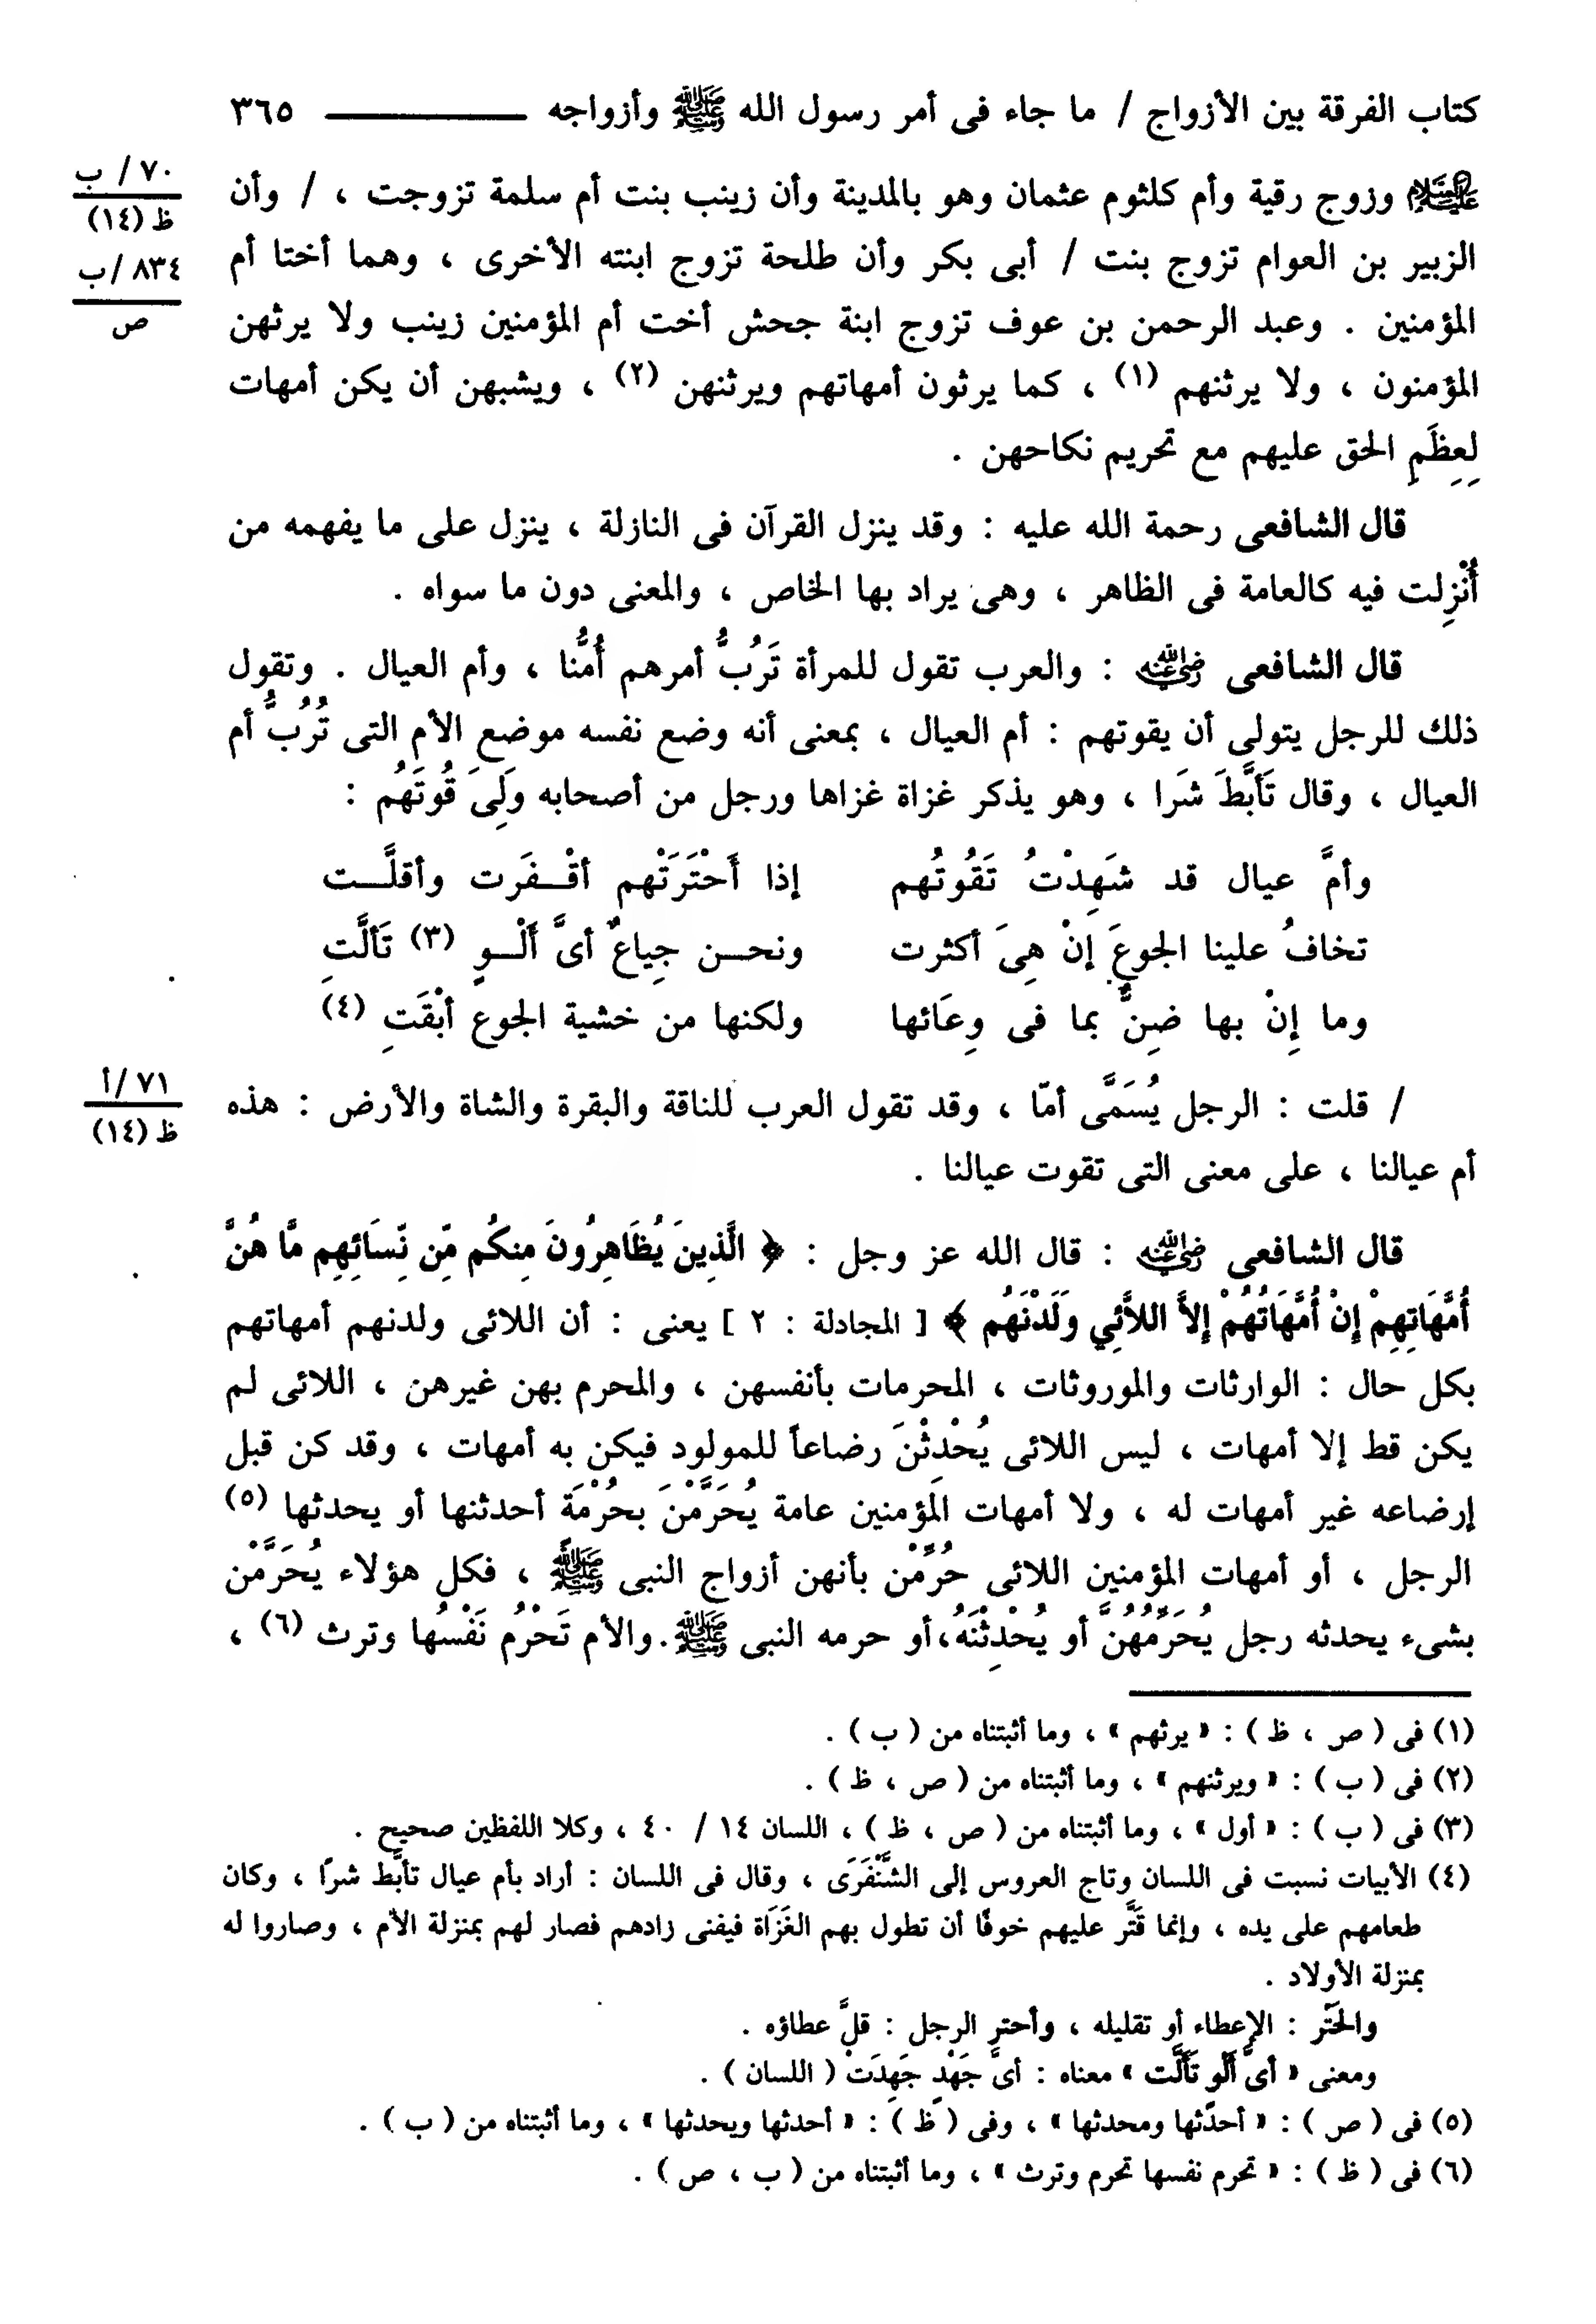 كتاب الفرقة بين الأزواج / ما جاء فى أمر رسول الله ﷺ وأزواجه ــــــــ ٣٦٥
عليه السلام وزوج رقية وأم كلثوم عثمان وهو بالمدينة وأن زينب بنت أم سلمة تزوجت ، / وأن
٧٠ / ب
ظ (١٤)
الزبير بن العوام تزوج بنت / أبى بكر وأن طلحة تزوج ابنته الأخرى ، وهما أختا أم
٨٣٤ /ب
ص
المؤمنين . وعبد الرحمن بن عوف تزوج ابنة جحش أخت أم المؤمنين زينب ولا يرثهن
المؤمنون ، ولا يرثنهم (١) ، كما يرثون أمهاتهم ويرثنهن (٢) ، ويشبهن أن يكن أمهات
لِعِظَمِ الحق عليهم مع تحريم نكاحهن .
قال الشافعى رحمة الله عليه : وقد ينزل القرآن فى النازلة ، ينزل على ما يفهمه من
أُنْزِلت فيه كالعامة فى الظاهر ، وهى يراد بها الخاص ، والمعنى دون ما سواه .
قال الشافعى رضي الله عنه : والعرب تقول للمرأة تَرُبُّ أمرهم أُمُّنا ، وأم العيال . وتقول
ذلك للرجل يتولى أن يقوتهم : أم العيال ، بمعنى أنه وضع نفسه موضع الأم التى تُرُبُّ أم
العيال ، وقال تَأبَّطَ شَرا ، وهو يذكر غزاة غزاها ورجل من أصحابه وَلِىَ قُوتَهُم :
وأمَّ عيال قد شَهِدْتُ تَقُوتُهم إذا أَحْتَرَتْهم أقْـفَرت وأقلَّـت
تخافُ علينا الجوعَ إنْ هِىَ أكثرت ونحـن جِياعٌ أىَّ أَلْـوٍ (٣) تَألَّتِ
وما إِنْ بها ضِنٌّ بما فى وِعَائها ولكنها من خشية الجوع أبْقَتِ (٤)
/ قلت : الرجل يُسَمَّى أمّا ، وقد تقول العرب للناقة والبقرة والشاة والأرض : هذه
٧١ /أ
ظ (١٤)
أم عيالنا ، على معنى التى تقوت عيالنا .
قال الشافعى رضي الله عنه : قال الله عز وجل : ﴿ الَّذِينَ يُظَاهِرُونَ مِنكُم مِّن نِّسَائِهِم مَّا هُنَّ
أُمَّهَاتِهِمْ إِنْ أُمَّهَاتُهُمْ إِلاَّ اللاَّئِي وَلَدْنَهُم ﴾ [ المجادلة : ٢ ] يعنى : أن اللائى ولدنهم أمهاتهم
بكل حال : الوارثات والموروثات ، المحرمات بأنفسهن ، والمحرم بهن غيرهن ، اللائى لم
يكن قط إلا أمهات ، ليس اللائى يُحْدِثْنَ رضاعاً للمولود فيكن به أمهات ، وقد كن قبل
إرضاعه غير أمهات له ، ولا أمهات المؤمنين عامة يُحَرَّمْنَ بحُرْمَة أحدثنها أو يحدثها (٥)
الرجل ، أو أمهات المؤمنين اللائى حُرِّمْن بأنهن أزواج النبى ﷺ ، فكل هؤلاء يُحَرَّمْن
بشىء يحدثه رجل يُحَرِّمُهُنَّ أو يُحْدِثْنَهُ،أو حرمه النبى ﷺ.والأم تَحْرُم نَفْسُها وترث (٦) ،
(١) فى ( ص ، ظ ) : « يرثهم » ، وما أثبتناه من ( ب ) .
(٢) فى ( ب ) : « ويرثنهم » ، وما أثبتناه من ( ص ، ظ ) .
(٣) فى ( ب ) : « أول » ، وما أثبتناه من ( ص ، ظ ) ، اللسان ١٤ / ٤٠ ، وكلا اللفظين صحيح .
(٤) الأبيات نسبت فى اللسان وتاج العروس إلى الشَّنْفَرَى ، وقال فى اللسان : أراد بأم عيال تأبَّط شرًا ، وكان
طعامهم على يده ، وإنما قَتَّر عليهم خوفًا أن تطول بهم الغَزَاة فيفنى زادهم فصار لهم بمنزلة الأم ، وصاروا له
بمنزلة الأولاد .
والحَتْر : الإعطاء أو تقليله ، وأحتر الرجل : قلَّ عطاؤه .
ومعنى « أىَّ أَلْوٍ تَأَلَّت » معناه : أىَّ جَهْدٍ جَهِدَتْ ( اللسان ) .
(٥) فى ( ص ) : « أحدثها ومحدثها » ، وفى ( ظ ) : « أحدثها ويحدثها » ، وما أثبتناه من ( ب ) .
(٦) فى ( ظ ) : « تحرم نفسها تحرم وترث » ، وما أثبتناه من ( ب ، ص ) .